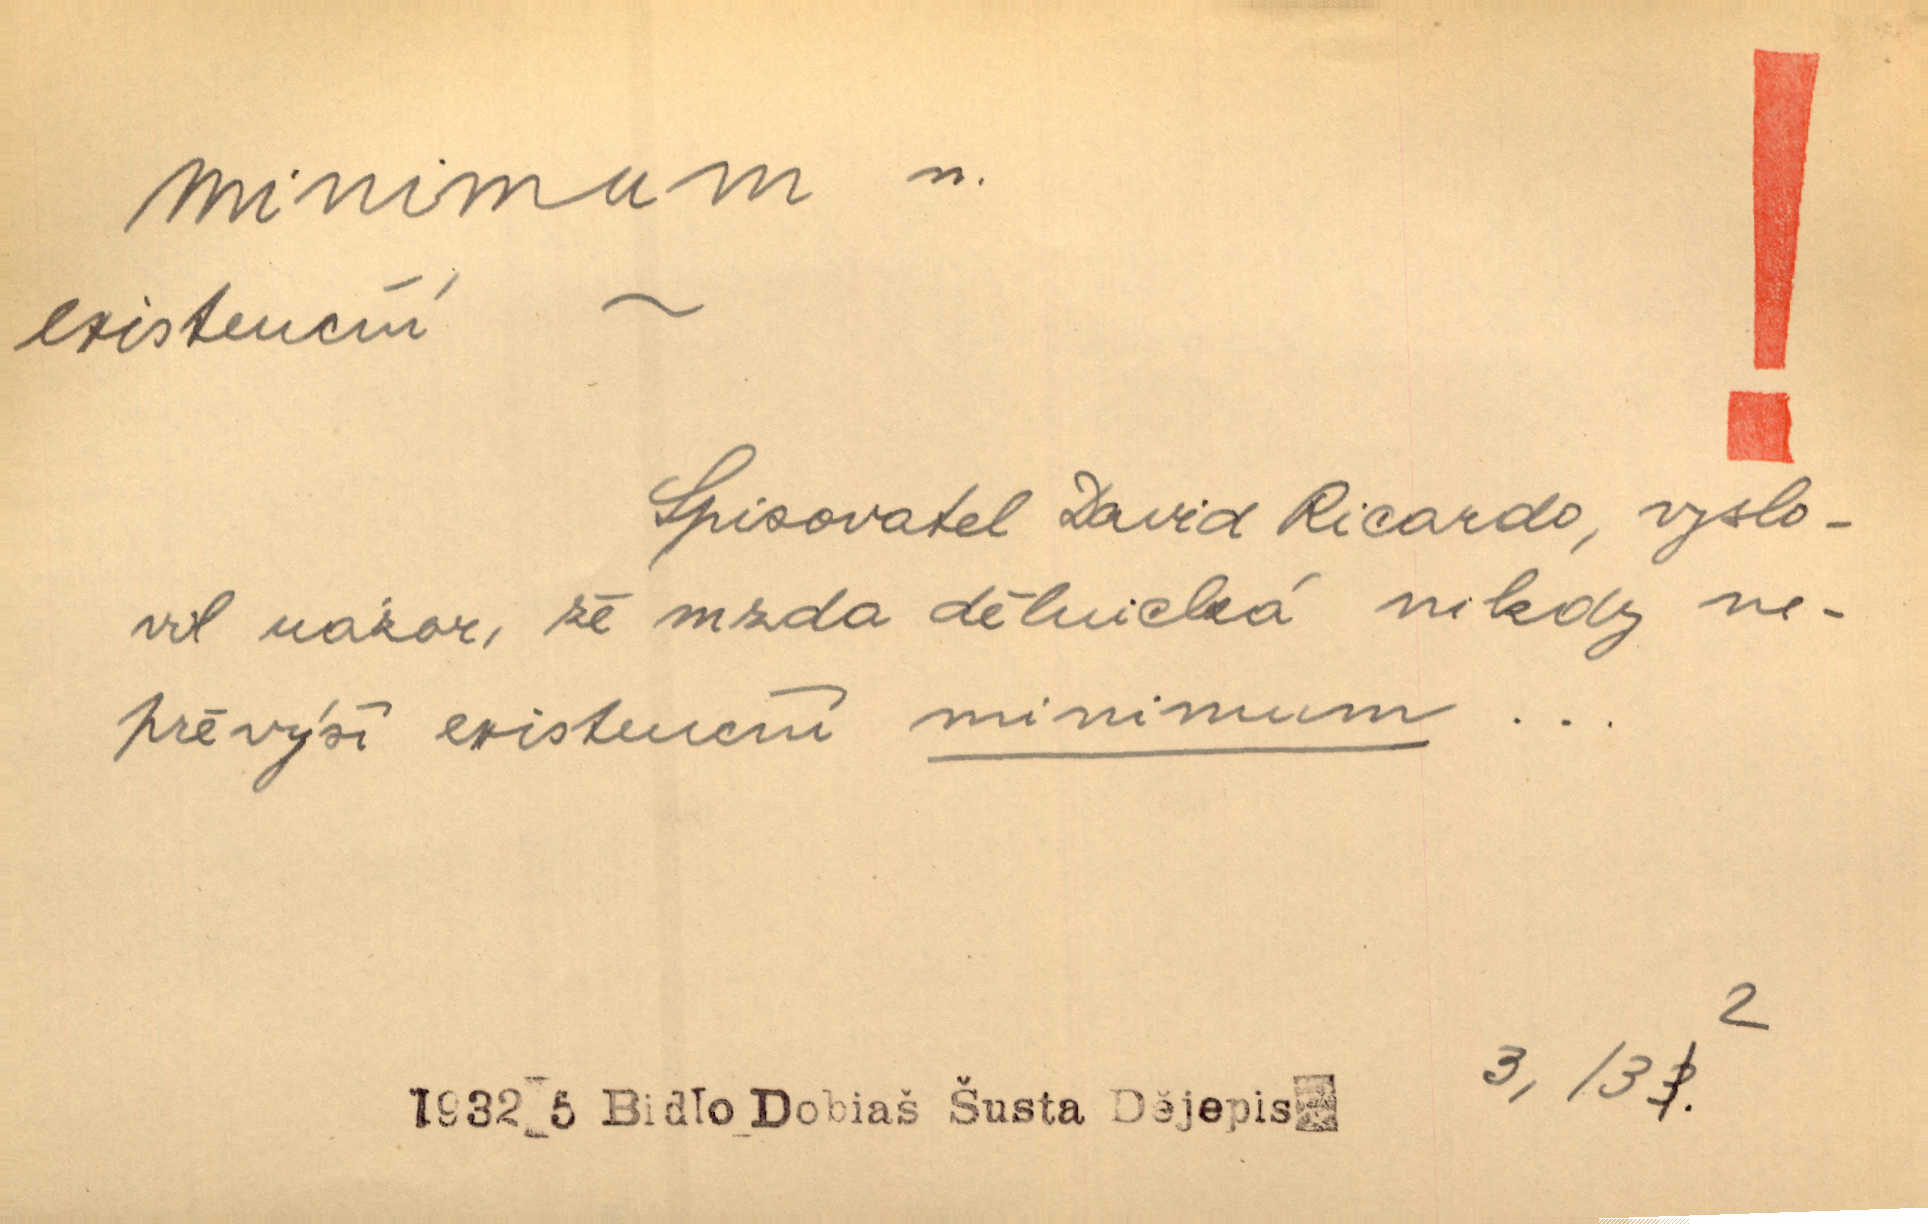 minimum n.
existenční ~
!
Spisovatel David Ricardo, vyslo-
vil názor, že mzda dělnická nikdy ne-
převýší existenční minimum ...
1932_5 Bidlo Dobiaš Šusta Dějepis
3, 132.